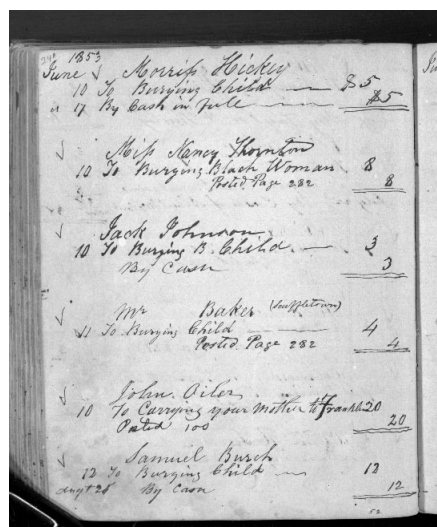 1853
June Morriss Hickey
10 To Burying Child $5
" 17 By Cash in full $5
Miss Nancy Thornton
10 To Burying Black Woman 8
Posted Page 282 8
Jack Johnson
10 To Burying B. Child 3
By Cash 3
Mr Baker (Scuffletown)
11 To Burying Child 4
Posted Page 282 4
John Oiler
10 To Carrying your Mother to Franklin 20
Posted 100 20
Samuel Burch
12 To Burying Child 12
Augt 28 By Cash 12